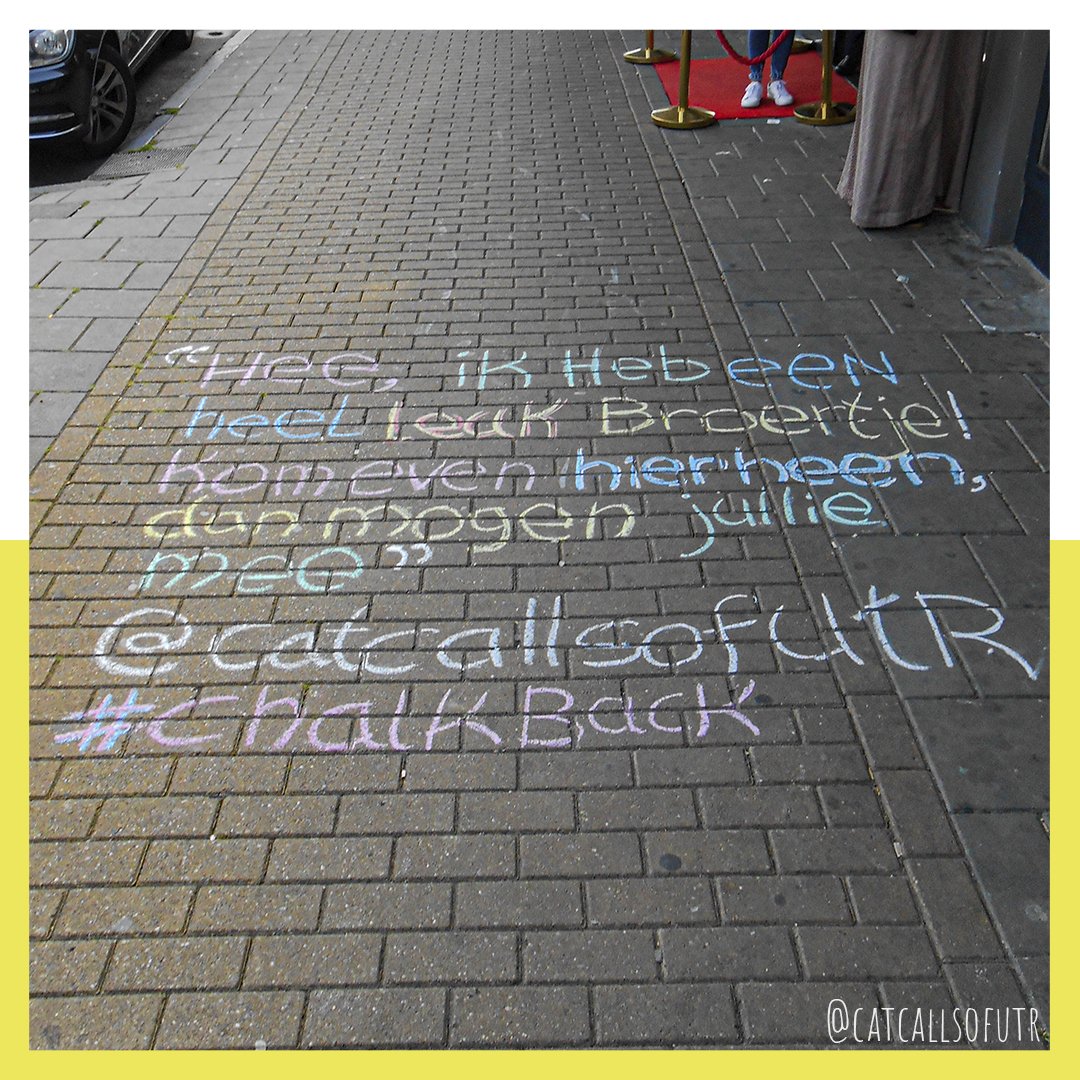 "Hee, ik Heb een
heel Leuk Broertje!
Kom even hierheen,
dan mogen jullie
mee"
@catcallsofUtR
#ChalkBack
@CATCALLSOFUTR